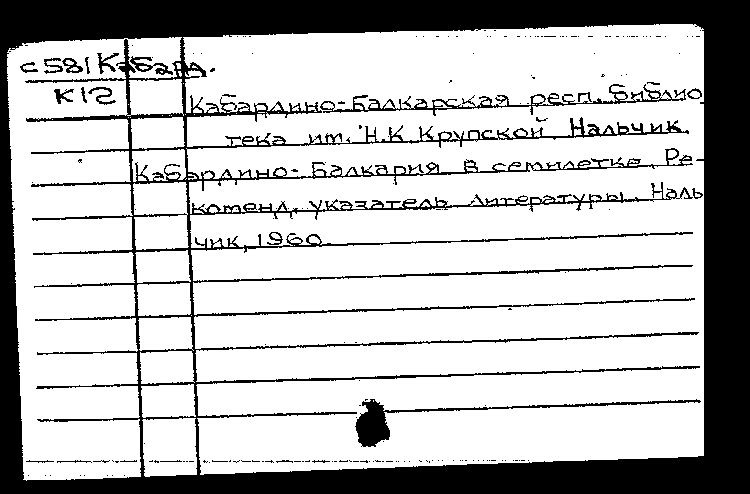 с581Кабард.
К12
Кабардино-Балкарская респ. библио
тека им. Н.К. Крупской. Нальчик.
Кабардино-Балкария в семилетке. Ре-
коменд. указатель литературы. Наль
чик, 1960.